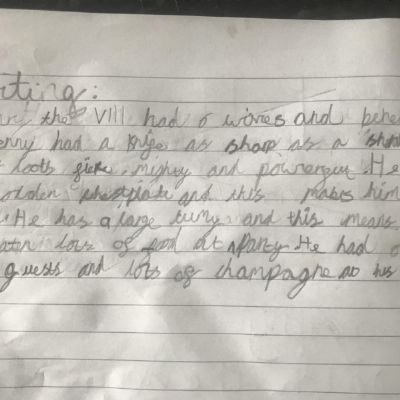 ting:
the VIII had 6 wives and behe
enry had a knige as sharp as a shar
looks and powergul. He
chestplate and this makes him
He has a large tumy and this means
eaten lots of good at a party. He had
guests and lots of champagne at his